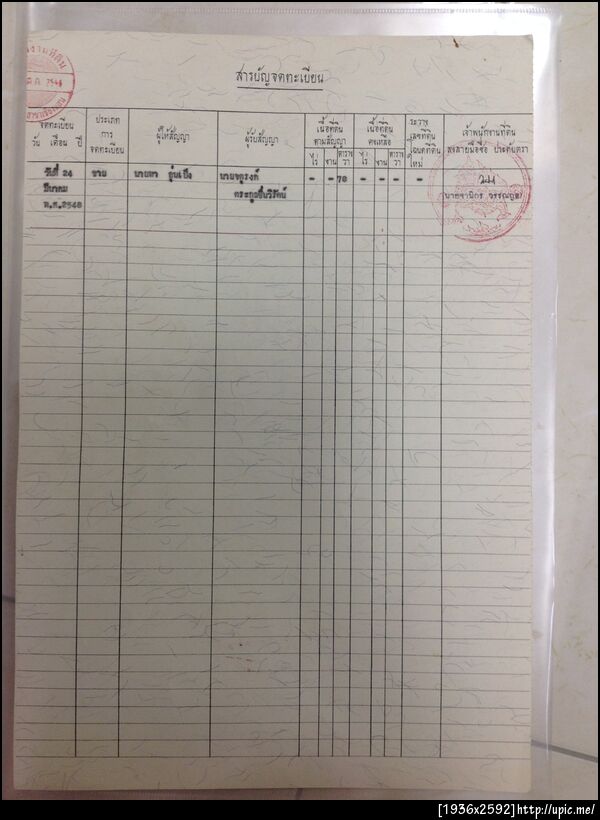 สารบัญจดทะเบียน
จดทะเบียน
วัน เดือน ปี
ประเภท
การ
จดทะเบียน
ผู้ให้สัญญา
ผู้รับสัญญา
เนื้อที่ดิน
ตามสัญญา
ไร่ งาน ตาราง
วา
เนื้อที่ดิน
คงเหลือ
ไร่ งาน ตาราง
วา
ระวาง
เลขที่ดิน
โฉนดที่ดิน
ใหม่
เจ้าพนักงานที่ดิน
ลงลายมือชื่อ ประทับตรา
วันที่ 24 ขาย นายทา อุ่นเป็ง นายจตุรงค์ - - 78 - - - -
มีนาคม ตระกูลชื่นวิรัตน์
พ.ศ.2548
[1936x2592]http://upic.me/